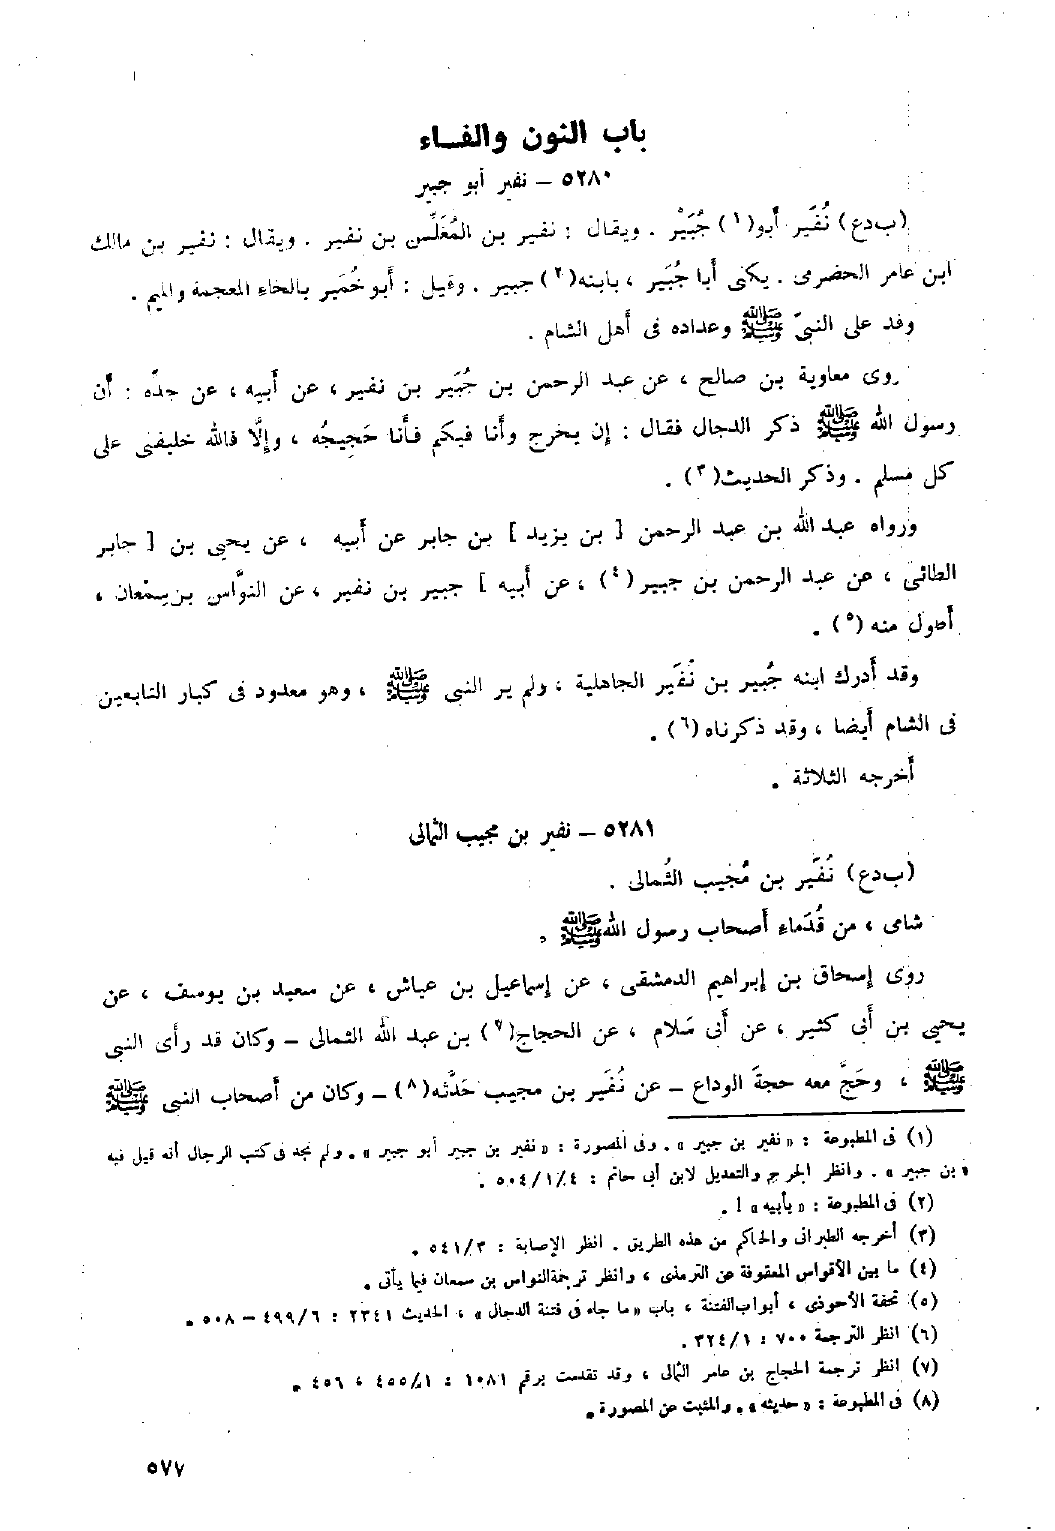 باب النون والفــاء
٥٢٨٠ – نفير أبو جبير
(ب‌دع) نُفَير أبو(١) جُبَيْر . ويقال : نفير بن المُغَلِّس بن نفير . ويقال : نفير بن مالك
ابن عامر الحضرمى . يكنى أبا جُبَير ، بابنه(٢) جبير . وقيل : أبو خُمَير بالخاء المعجمة والميم .
وفد على النبىّ ﷺ وعداده فى أهل الشام .
روى معاوية بن صالح ، عن عبد الرحمن بن جُبَير بن نفير ، عن أبيه ، عن جدّه : أن
رسول الله ﷺ ذكر الدجال فقال : إن يخرج وأنا فيكم فأنا حَجِيجُه ، وإلَّا فالله خليفتى على
كل مسلم . وذكر الحديث(٣) .
ورواه عبد الله بن عبد الرحمن [ بن يزيد ] بن جابر عن أبيه ، عن يحيى بن [ جابر
الطائى ، عن عبد الرحمن بن جبير (٤) ، عن أبيه ] جبير بن نفير ، عن النوَّاس بن سِمْعان ،
أطول منه (٥) .
وقد أدرك ابنه جُبير بن نُفَير الجاهلية ، ولم ير النبى ﷺ ، وهو معدود فى كبار التابعين
فى الشام أيضا ، وقد ذكرناه (٦) .
أخرجه الثلاثة .
٥٢٨١ – نفير بن مجيب الثمالى
(ب‌دع) نُفَير بن مُجيب الثُمالى .
شامى ، من قُدَماء أصحاب رسول الله ﷺ .
روى إسحاق بن إبراهيم الدمشقى ، عن إسماعيل بن عياش ، عن سعيد بن يوسف ، عن
يحيى بن أبى كثير ، عن أبى سَلام ، عن الحجاج(٧) بن عبد الله الثمالى – وكان قد رأى النبى
ﷺ ، وحَجَّ معه حجةَ الوداع – عن نُفَير بن مجيب حَدَّثه(٨) – وكان من أصحاب النبى ﷺ
(١) فى المطبوعة : « نفير بن جبير » . وفى المصورة : « نفير بن جبير أبو جبير » . ولم نجد فى كتب الرجال أنه قيل فيه
« بن جبير » . وانظر الجرح والتعديل لابن أبى حاتم : ٤/١/٥٠٤ .
(٢) فى المطبوعة : « بأبيه » ! .
(٣) أخرجه الطبرانى والحاكم من هذه الطريق . انظر الإصابة : ٥٤١/٣ .
(٤) ما بين الأقواس المعقوفة عن الترمذى ، وانظر ترجمة النواس بن سمعان فيما يأتى .
(٥) تحفة الأحوذى ، أبواب الفتنة ، باب « ما جاء فى فتنة الدجال » ، الحديث ٢٣٤١ : ٤٩٩/٦ – ٥٠٨ .
(٦) انظر الترجمة ٧٠٠ : ٣٢٤/١ .
(٧) انظر ترجمة الحجاج بن عامر الثمالى ، وقد تقدمت برقم ١٠٨١ : ٤٥٥/١ ، ٤٥٦ .
(٨) فى المطبوعة : « حديثه » . والمثبت عن المصورة .
٥٧٧